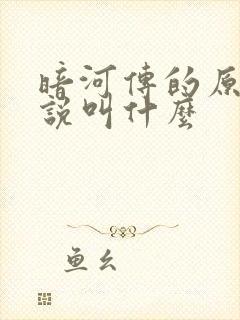 暗河傳的原
說叫什麼
鱼幺